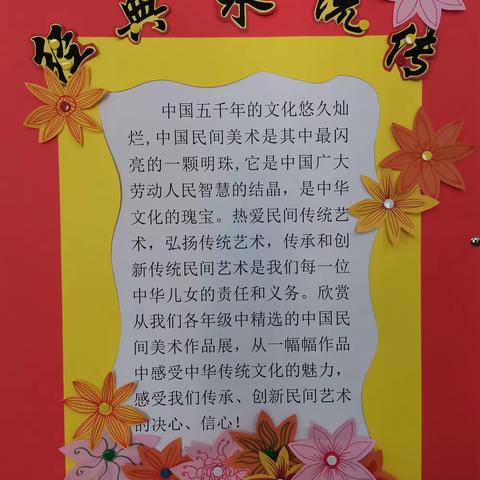 经典永流传
中国五千年的文化悠久灿
烂,中国民间美术是其中最闪
亮的一颗明珠,它是中国广大
劳动人民智慧的结晶，是中华
文化的瑰宝。热爱民间传统艺
术，弘扬传统艺术，传承和创
新传统民间艺术是我们每一位
中华儿女的责任和义务。欣赏
从我们各年级中精选的中国民
间美术作品展，从一幅幅作品
中感受中华传统文化的魅力，
感受我们传承、创新民间艺术
的决心、信心！